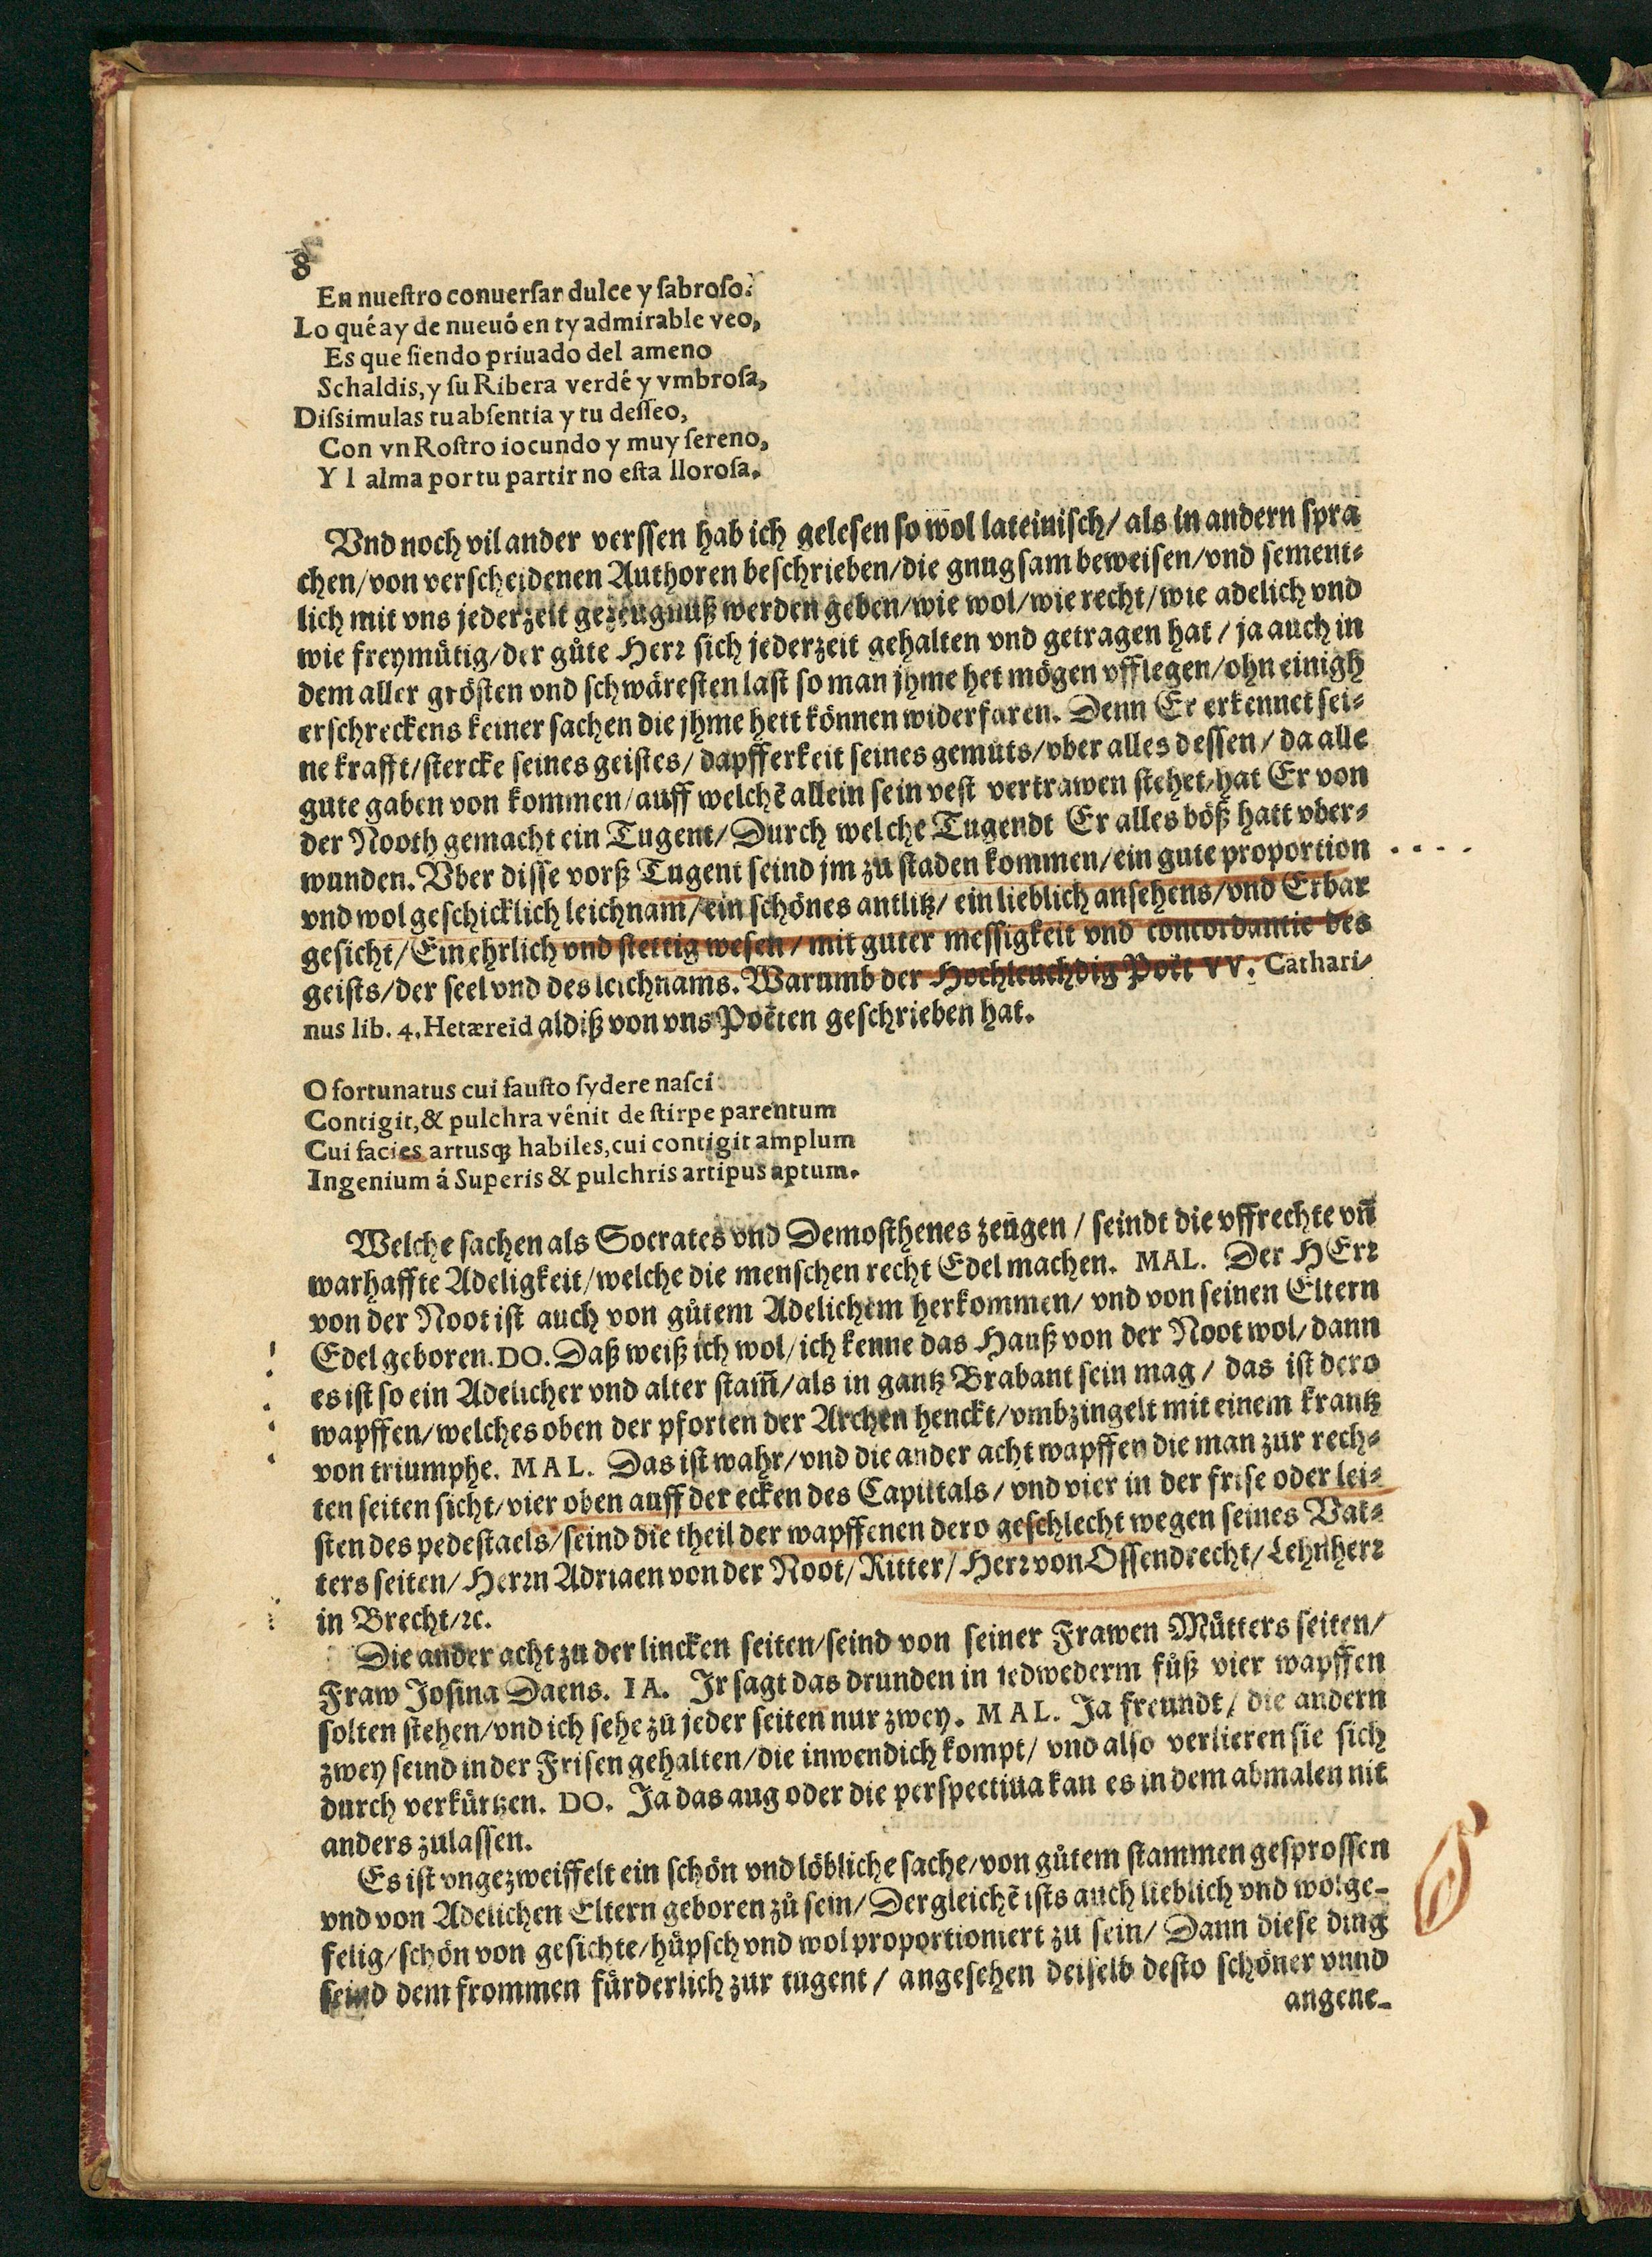 8
En nueſtro conuerſar dulce y ſabroſo.
Lo qué ay de nueuó en ty admirable veo,
Es que ſiendo priuado del ameno
Schaldis, y ſu Ribera verdé y vmbroſa,
Diſsimulas tu abſentia y tu deſſeo,
Con vn Roſtro iocundo y muy ſereno,
Y l alma por tu partir no eſta lloroſa.
Vnd noch vil ander verſſen hab ich geleſen ſo wol lateiniſch/ als in andern ſpra
chen/ von verſcheidenen Authoren beſchrieben/ die gnugſam beweiſen/ vnd ſement⸗
lich mit vns jederzeit gezeugnuß werden geben/ wie wol/ wie recht/ wie adelich vnd
wie freymütig/ der gůte Herr ſich jederzeit gehalten vnd getragen hat/ ja auch in
dem aller gröſten vnd ſchwäreſten laſt ſo man jhme het mögen vfflegen/ ohn einigh
erſchreckens keiner ſachen die jhme hett können widerfaren. Denn Er erkennet ſei⸗
ne krafft/ ſtercke ſeines geiſtes/ dapfferkeit ſeines gemüts/ vber alles deſſen/ da alle
gute gaben von kommen/ auff welchẽ allein ſein veſt vertrawen ſtehet/ hat Er von
der Nooth gemacht ein Tugent/ Durch welche Tugendt Er alles böß hatt vber⸗
wunden. Vber diſſe vorß Tugent ſeind jm zu ſtaden kommen/ ein gute proportion
vnd wol geſchicklich leichnam/ ein ſchönes antlitz/ ein lieblich anſehens/ vnd Erbar
geſicht/ Ein ehrlich vnd ſtettig weſen/ mit guter meſſigkeit vnd concordantie des
geiſts/ der ſeel vnd des leichnams. Warumb der Hochleuchdig Poët VV. Cathari⸗
nus lib. 4. Hetæreid aldiß von vns Poëten geſchrieben hat.
O fortunatus cui fauſto ſydere naſci
Contigit, & pulchra vênit de ſtirpe parentum
Cui facies artusq; habiles, cui contigit amplum
Ingenium á Superis & pulchris artipus aptum.
Welche ſachen als Socrates vnd Demoſthenes zeugen/ ſeindt die vffrechte vñ
warhaffte Adeligkeit/ welche die menſchen recht Edel machen. MAL. Der HErr
von der Noot iſt auch von gůtem Adelichem herkommen/ vnd von ſeinen Eltern
Edel geboren. DO. Daß weiß ich wol/ ich kenne das Hauß von der Noot wol/ dann
es iſt ſo ein Adelicher vnd alter ſtam̃/ als in gantz Brabant ſein mag/ das iſt dero
wapffen/ welches oben der pforten der Archen henckt/ vmbzingelt mit einem krantz
von triumphe. MAL. Das iſt wahr/ vnd die ander acht wapffen die man zur rech⸗
ten ſeiten ſicht/ vier oben auff der ecken des Capittals/ vnd vier in der friſe oder lei⸗
ſten des pedeſtaels/ ſeind die theil der wapffenen dero geſchlecht wegen ſeines Vat⸗
ters ſeiten/ Herrn Adriaen von der Noot/ Ritter/ Herr von Oſſendrecht/ Lehnherr
in Brecht/ ꝛc.
Die ander acht zu der lincken ſeiten/ ſeind von ſeiner Frawen Můtters ſeiten/
Fraw Joſina Daens. IA. Ir ſagt das drunden in iedwederm fůß vier wapffen
ſolten ſtehen/ vnd ich ſehe zů jeder ſeiten nur zwey. MAL. Ja freundt/ die andern
zwey ſeind in der Friſen gehalten/ die inwendich kompt/ vnd alſo verlieren ſie ſich
durch verkürtzen. DO. Ja das aug oder die perſpectiua kan es in dem abmalen nit
anders zulaſſen.
Es iſt vngezweiffelt ein ſchön vnd löbliche ſache/ von gůtem ſtammen geſproſſen
vnd von Adelichen Eltern geboren zů ſein/ Dergleichẽ iſts auch lieblich vnd wolge⸗
felig/ ſchön von geſichte/ hüpſch vnd wol proportioniert zu ſein/ Dann dieſe ding
ſeind dem frommen fürderlich zur tugent/ angeſehen deiſelb deſto ſchöner vnnd
angene⸗